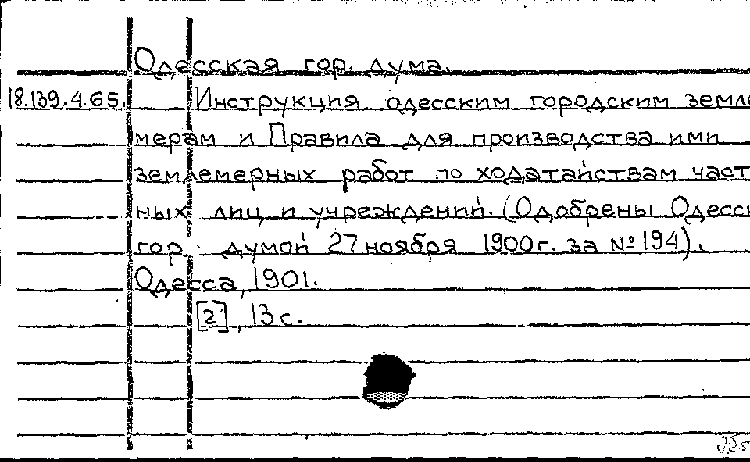 Одесская гор. дума.
18.139.4.65. Инструкция одесским городским земле
мерам и Правила для производства ими
землемерных работ по ходатайствам част
ных лиц и учреждений. (Одобрены Одесск
гор. думой 27 ноября 1900г. за №194).
Одесса, 1901.
[2], 13 с.